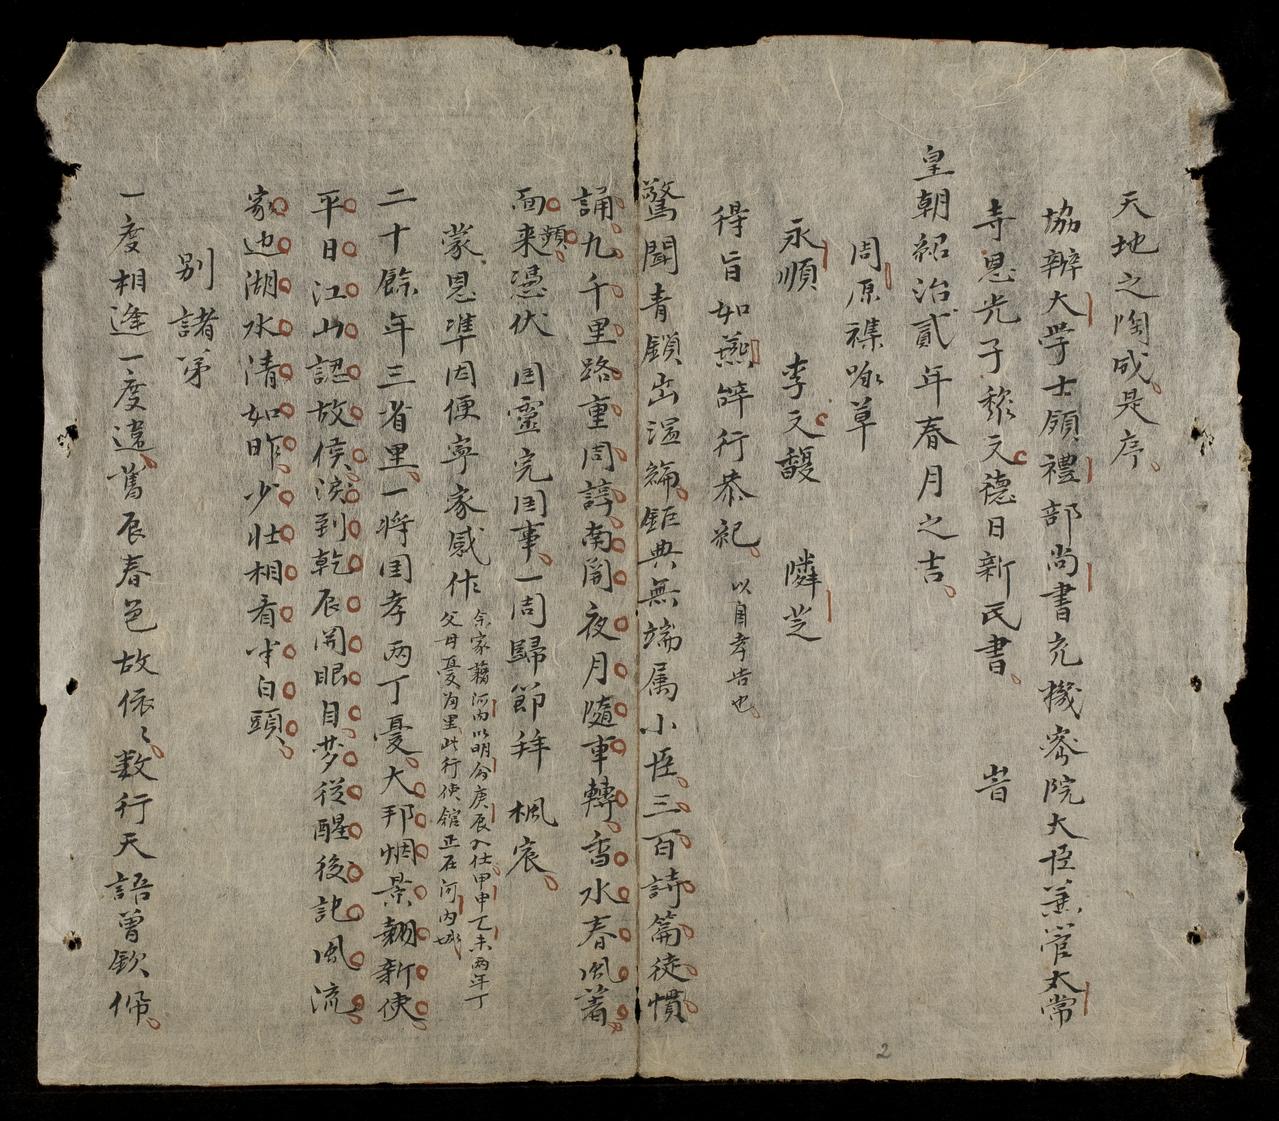 天地之陶成是序
協辦大学士領禮部尚書充機密院大臣兼管太常
寺恩光子黎文德日新氏書 旹
皇朝紹治貳年春月之吉
周原襍咏草
永順 李文馥 隣芝
得旨如燕辞行恭紀 以自孝告也
驚聞青鎖出温綸鉅典無端属小臣三百詩篇徒慣
誦九千里路重周諄南關夜月隨車轉香水春風著
面来頻憑伏 国靈完国事一周歸節拜 楓宸
蒙恩準因便寧家感作 余家籍河内以明命庚辰入仕甲申乙未两年丁
父母憂为里此行使舘正在河内城
二十餘年三省里一将国孝两丁憂大邦烟景翻新使
平日江山認故侯涙到乾辰開眼目梦從醒後記風流
家边湖水清如昨少壮相看半白頭
别諸弟
一度相逢一度違舊辰春色故依〻数行天語曾欽佩
2